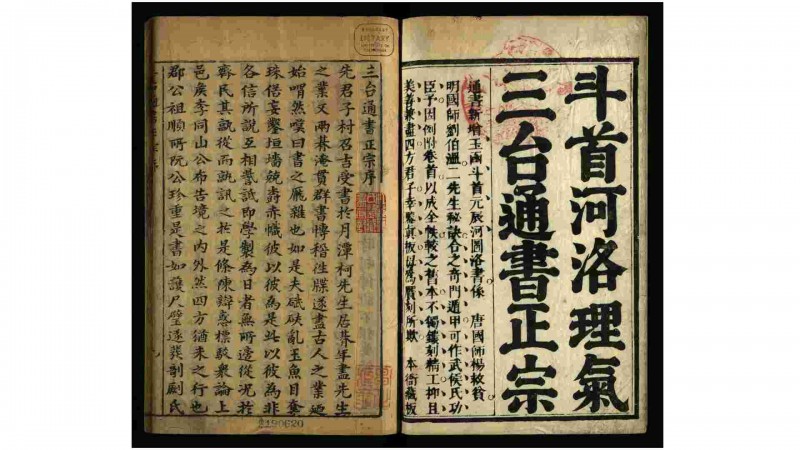 斗首河洛理氣
三台通書正宗
通書新增玉國斗首元辰河圖洛書係 唐國師楊救貧
明國師劉伯溫二先生秘訣合之奇門遁甲可作武侯氏功
臣予因例附卷首以成全帙較之舊本不獨鐫刻精工抑且
美善兼盡四方君子幸鑒真板 本衙藏板
三台通書正宗序
先君子村召吉受書於月潭柯先生居朞年盡先生
之業又兩朞淹貫群書博稽往牒遂盡古人之業
始喟然嘆曰書之厖雜也如是夫砥砆亂玉魚目奪
珠借妄鑿垣墻兢壽赤幟彼以彼為是此以彼為非
各信所說互相詆即學製為日者無所適從況於
齊民其孰從而訊之於是條陳辯惑標敬衆論上
邑矦李同山公布告境之內外然四方猶未之行也
郡公祖順所阮公珍重是書如護尺璧遂葬剞劂氏
190620
LIBRARY